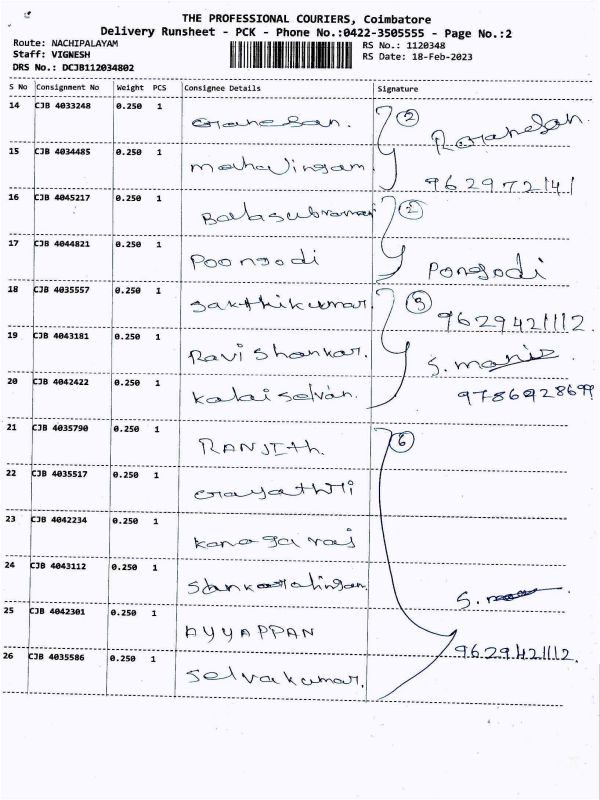 THE PROFESSIONAL COURIERS, Coimbatore
Delivery Runsheet - PCK - Phone No.:0422-3505555 - Page No.:2
Route: NACHIPALAYAM
RS No.: 1120348
Staff: VIGNESH
RS Date: 18-Feb-2023
DRS No.: DCJB112034802
S No Consignment No Weight PCS Consignee Details Signature
14 CJB 4033248 0.250 1 Ganesan. 2 R. Ganesan.
15 CJB 4034485 0.250 1 mahalingam
16 CJB 4045217 0.250 1 Balasubramani 2
17 CJB 4044821 0.250 1 Poongodi Pongodi
18 CJB 4035557 0.250 1 Sakthikumar. 3 9629421112.
19 CJB 4043181 0.250 1 Ravi Shankar. S. mani
20 CJB 4042422 0.250 1 Kalai selvan. 9786928699
21 CJB 4035790 0.250 1 RANJIth. 6
22 CJB 4035517 0.250 1 Gayathri
23 CJB 4042234 0.250 1 Kanagaraj
24 CJB 4043112 0.250 1 S.
25 CJB 4042301 0.250 1 AYYAPPAN
9629421112.
26 CJB 4035586 0.250 1 Selvakumar.